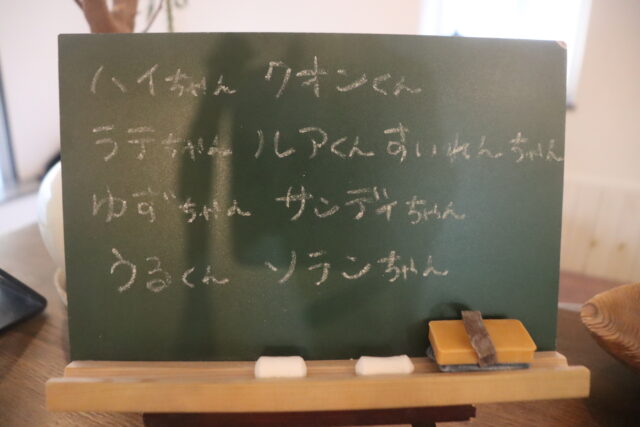 ハイちゃん クオンくん
ラテちゃん ルアくん すいれんちゃん
ゆずちゃん サンディちゃん
うるくん ソテンちゃん